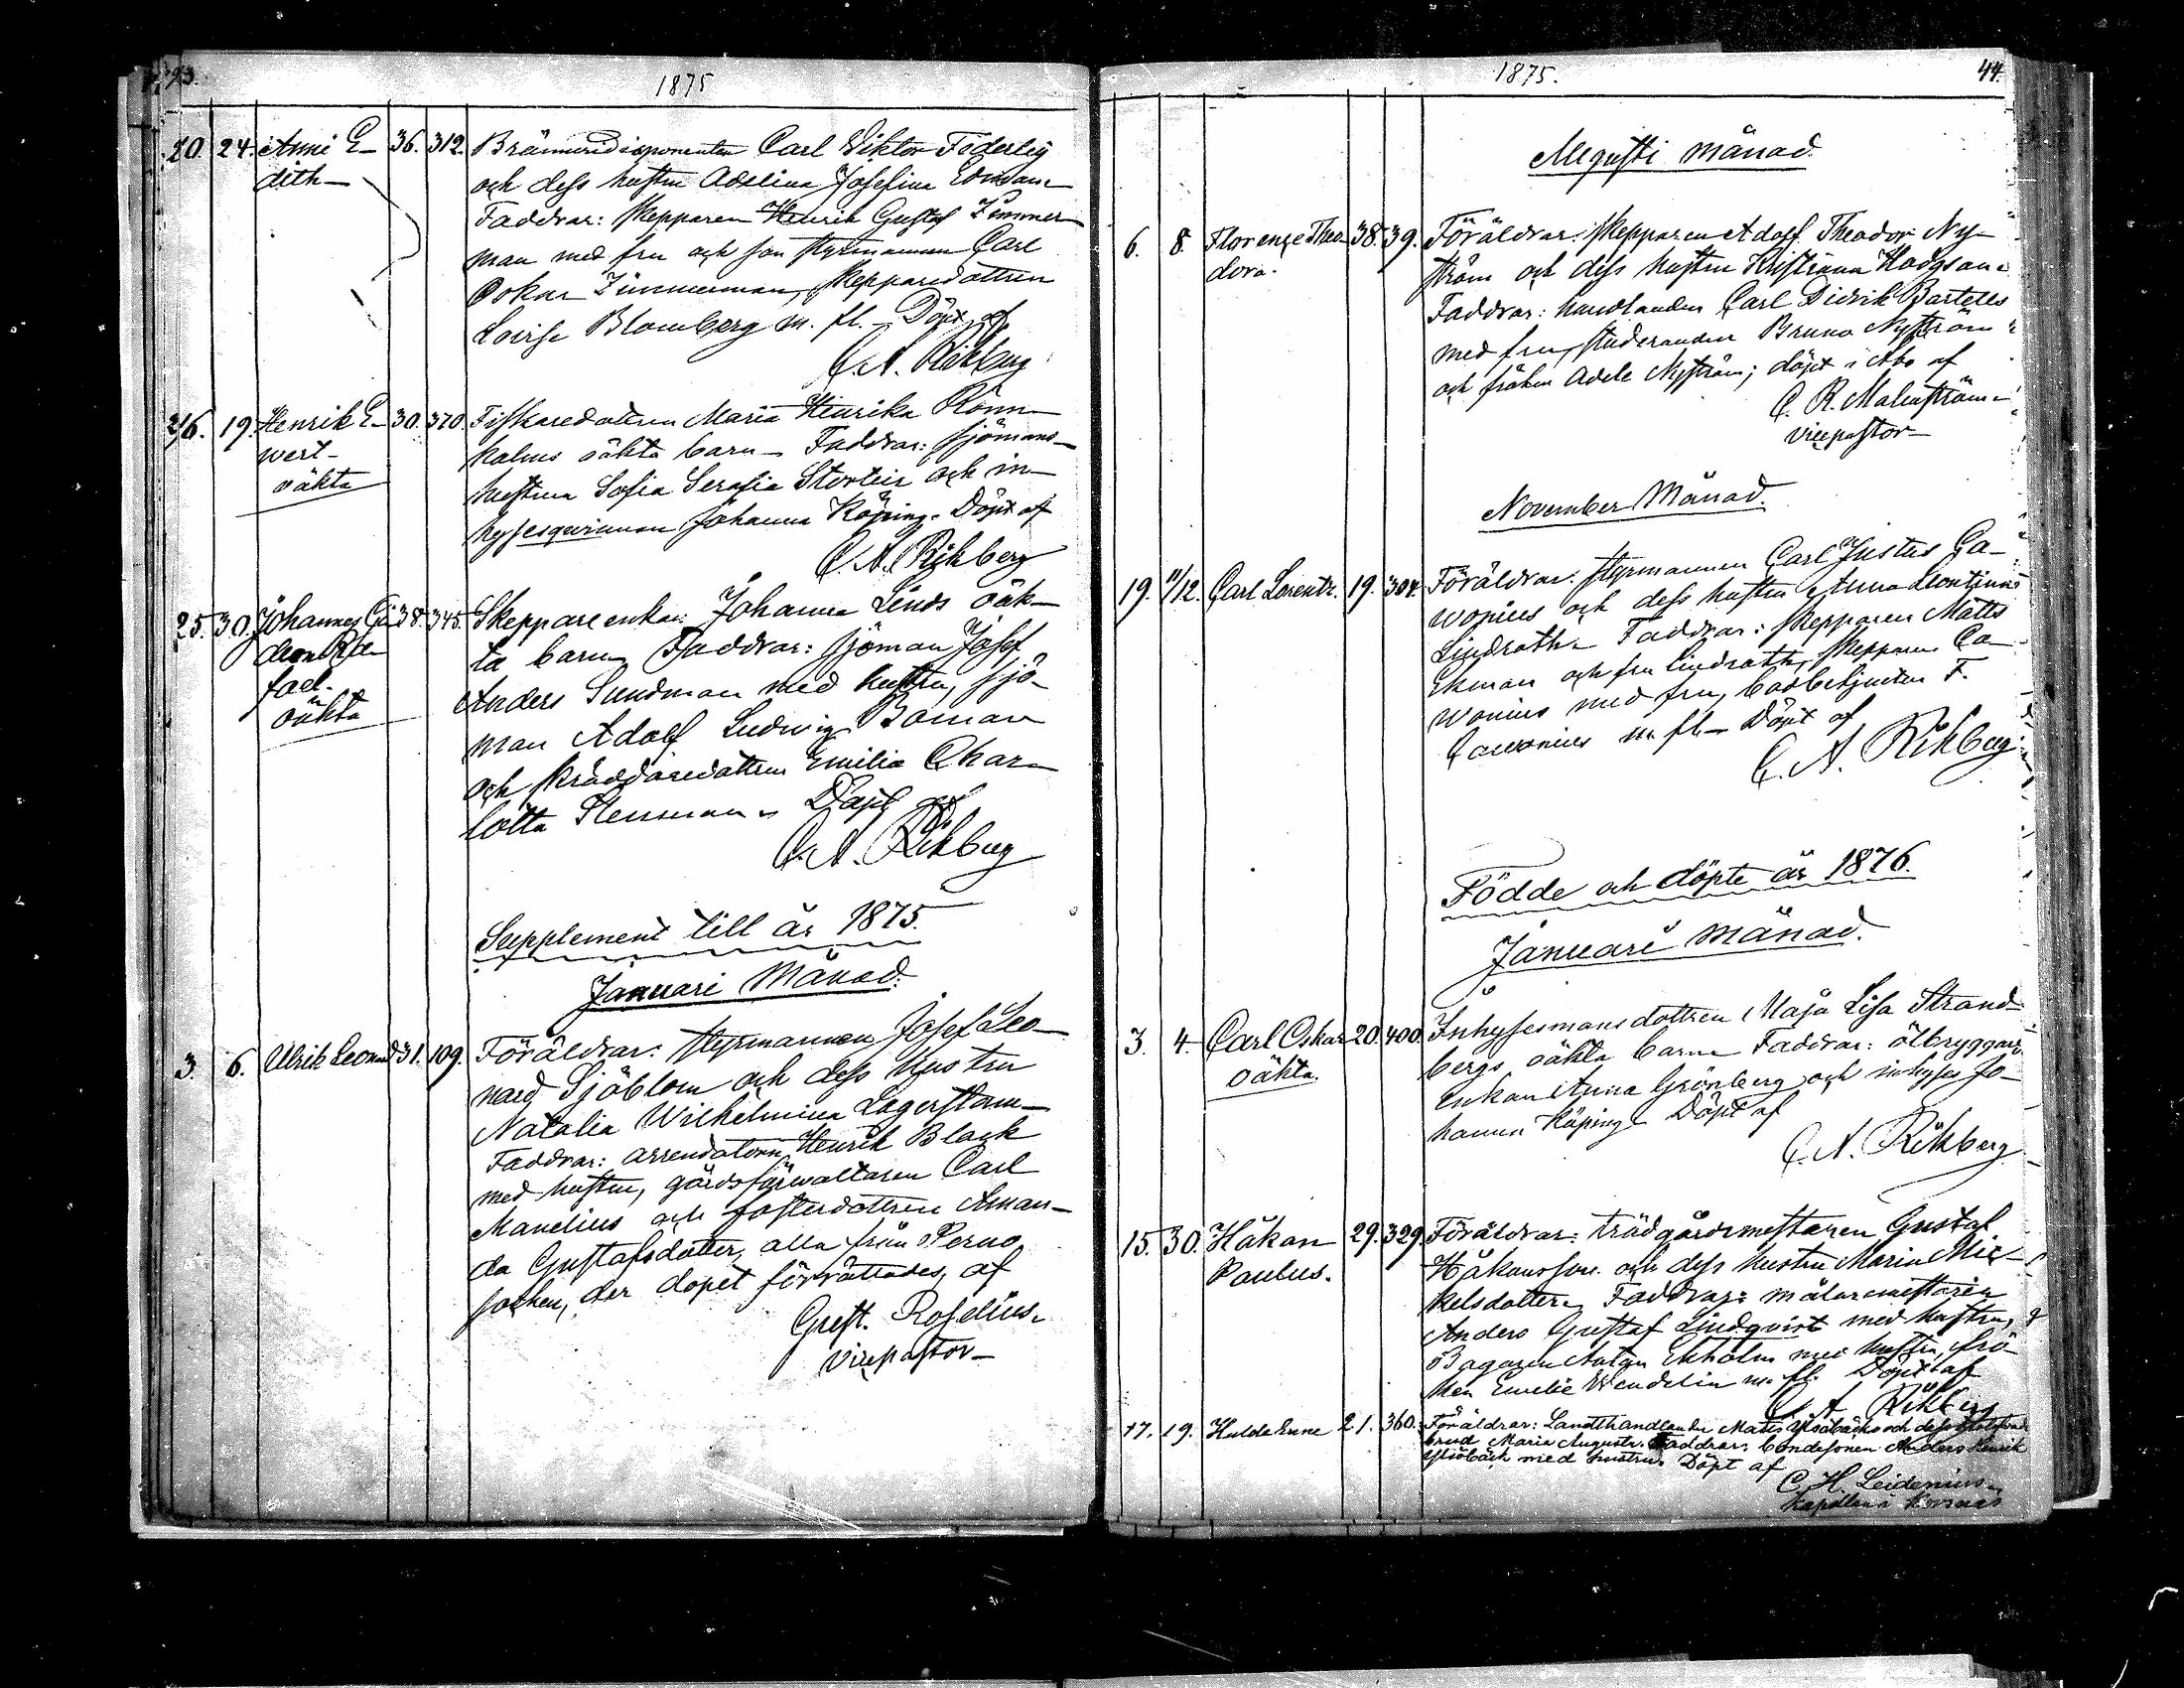 1875
20. 24. Anni E- 36. 312. Bränneridisponenten Carl Viktor Federley
dith- och dess hustru Adelina Josefina Edman
Faddrar: skepparen Henrik Gustaf Zimmer-
man med fru och son styrmannen Carl
Oskar Zimmerman, skepparedottren
Lovise Blomberg m. fl. Döpt af
C. A. Rikberg
2/6. 19. Henrik E- 30. 320. Fiskaredottren Maria Henrika Rönn-
wert- holms oäkta barn - Faddrar: sjömans-
oäkta hustrun Sofia Serafia Storteir och in-
hysesqvinnan Johanna Köping. Döpt af
C. A. Rikberg
25. 30. Johannes Gi- 38. 345. Skeppareenkan Johanna Linds oäk-
deon Ra- ta barn Faddrar: sjöman Josef
fael- Anders Sundman med hustru, sjö-
oäkta man Adolf Ludvig Boman
och skräddaredottren Emilia Char-
lotta Stenman. Döpt af
C. A. Rikberg
Supplement till år 1875.
Januari Månad.
3. 6. Ulrik Leonard 31. 109. Föräldrar: styrmannen Josef Leo-
nard Sjöblom och dess hustru
Natalia Wilhelmina Lagerstam-
Faddrar: arrendatorn Henrik Black
med hustru, gårdsförwaltaren Carl
Manelius och fosterdottren Aman-
da Gustafsdotter, alla från Perno
socken, der dopet förrättades, af
Gust. Roselius.
vicepastor-
1875. 44.
Augusti månad.
6. 8. Florence Theo- 38. 39. Föräldrar: skepparen Adolf Theodor Ny-
dora. ström och dess hustru Kristiana Hodgson
Faddrar: handlanden Carl Didrik Bartells
med fru, studeranden Bruno Nyström
och fröken Adele Nyström; döpt i Åbo af
C. R. Malmström
vicepastor-
November Månad.
19. 11/12. Carl Lorentz. 19. 304. Föräldrar: styrmannen Carl Justus Ca-
wonius och dess hustru Anna Leontina
Lindroth. Faddrar: skepparen Matts
Ekman och fru Lindroth, skepparen Ca-
wonius med fru, F.
Cawonius m fl. Döpt af
C. A. Rikberg.
Födde och döpte år 1876.
Januari månad.
3. 4. Carl Oskar 20. 400. Inhysesmansdottren Maja Lisa Strand-
oäkta. bergs oäkta barn Faddrar: ölbryggare
enkan Anna Grönberg och inhyses Jo-
hanna Köping Döpt af
C. A. Rikberg
15. 30. Håkan 29. 329. Föräldrar: trädgårdsmestaren Gustaf
Paulus. Håkansson och dess hustru Maria Mic-
kelsdotter. Faddrar: målaremestaren
Anders Gustaf Lindqvist med hustru,
Bagaren Anton Ekholm med hustru, frö-
ken Emelie Wendelin m. fl. Döpt af
C A Rikberg
17. 19. Hulda Irene 21. 360. Föräldrar: Landthandlanden Matts Ytsibäcks och dess
Maria Augusta. Faddrar: bondesonen Anders Henrik
Ytsibäck med hustru. Döpt af
C. H. Leidenius.
kapellan i Korsnäs